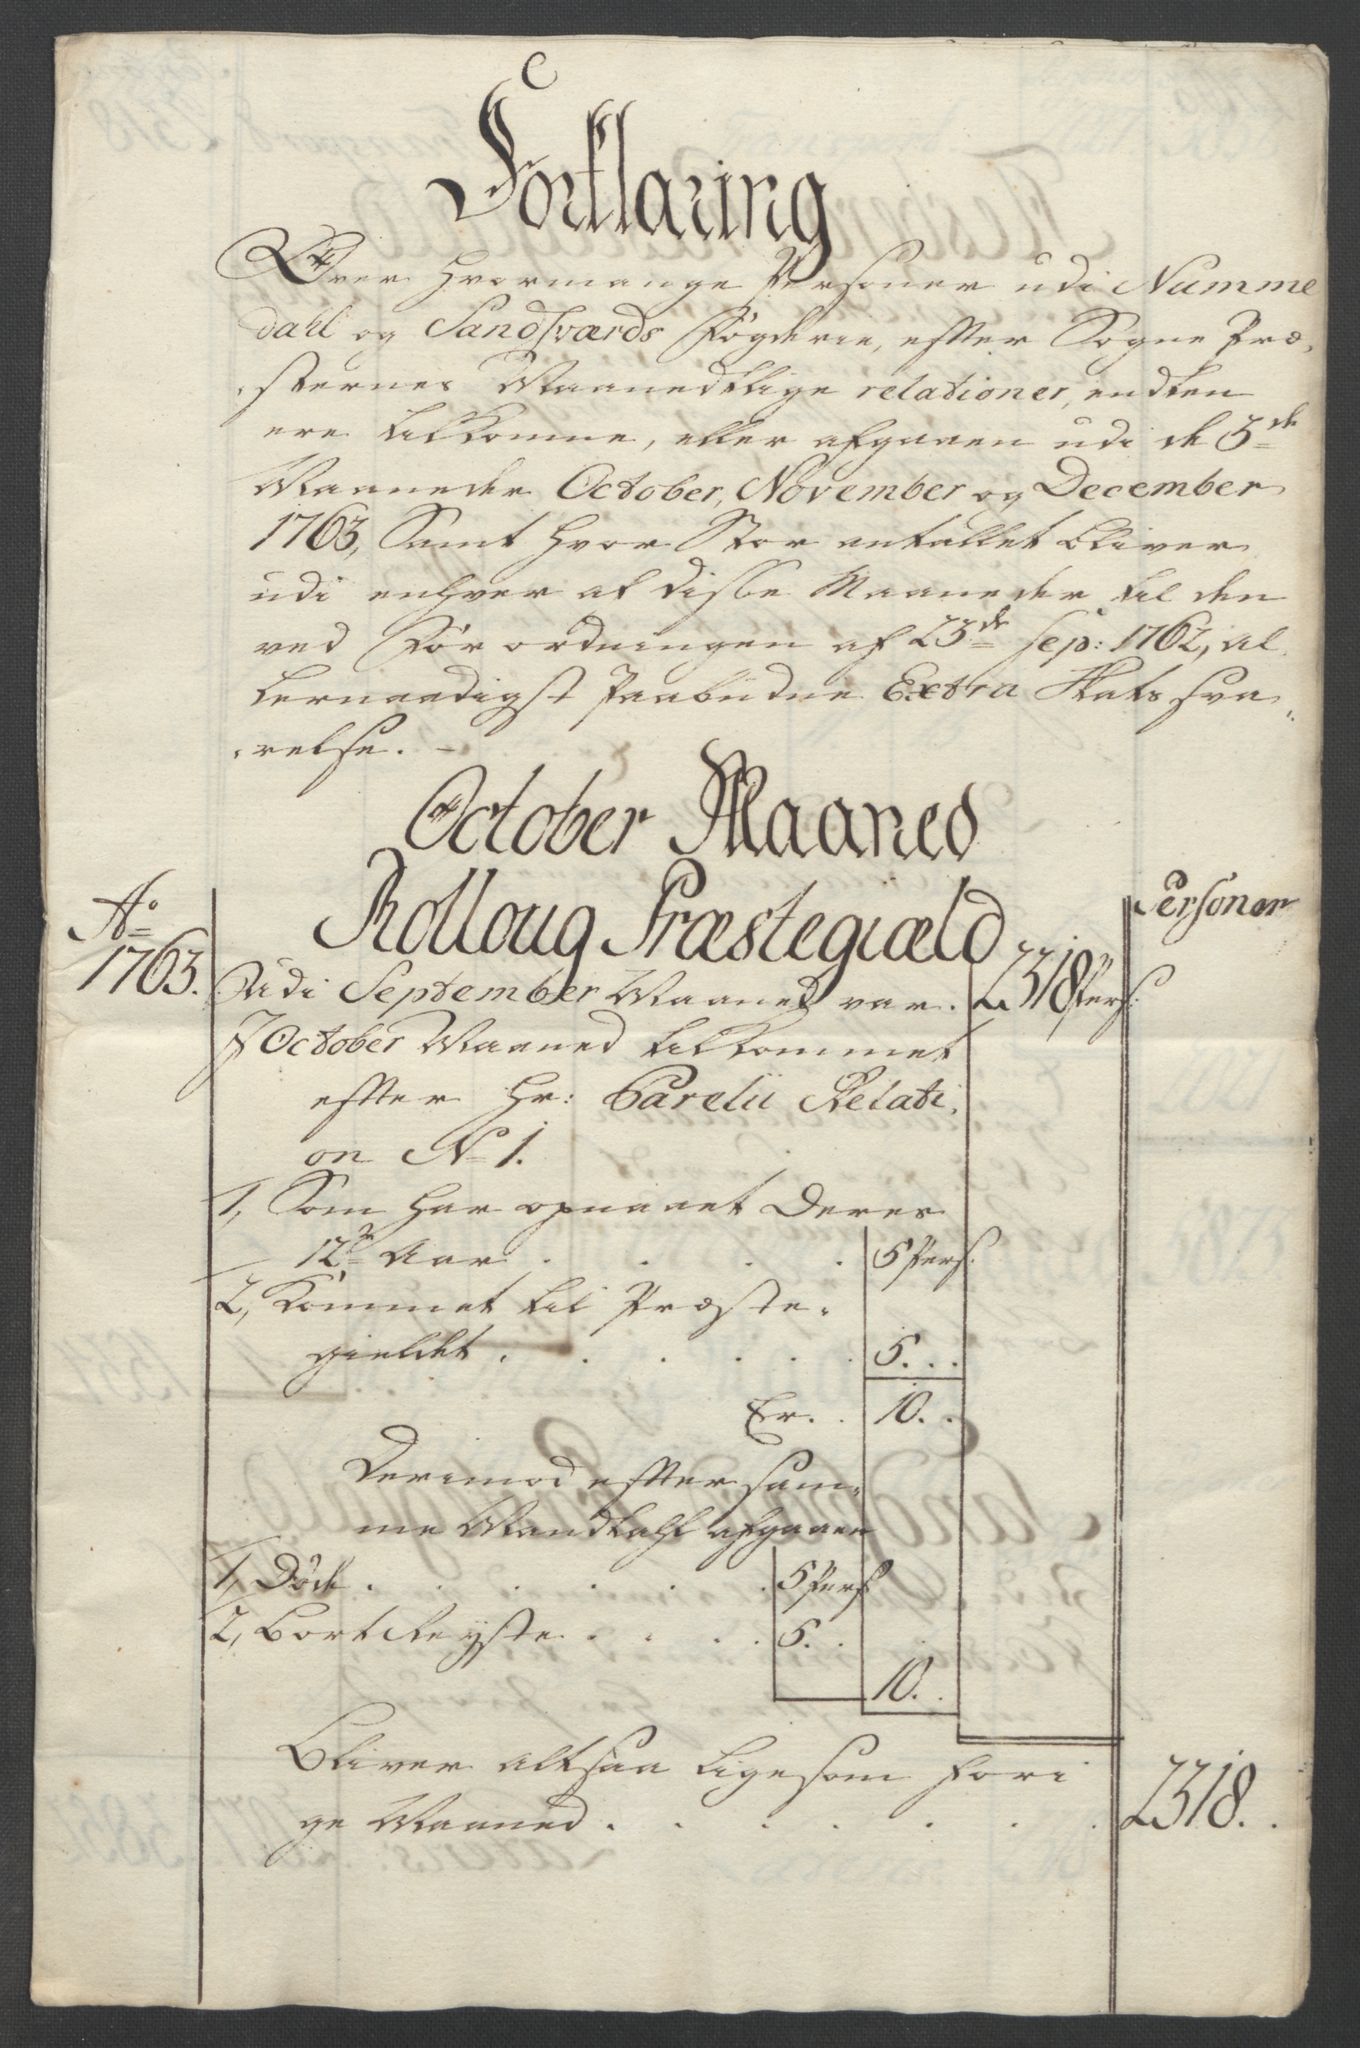 Forklaring
Over hvormange Personer udi Numme
dahl og Sandsværds Fögderie, efter Sogne Præ,
,sternes Maanedtlige relationer, endten
ere tilkomne, eller afgaaen udi de 3de
Maaneder October, November og December
1763, Samt hvor Stor antallet bliver
udi enhver af disse Maaneder til den
ved Forordningen af 23de Sep: 1762, al
lernaadigst Paabudne Extra Skats sva,,
,relse. –
October Maaned
Personer
Ao
1763.
Rolloug Præstegiæld
Udi September Maaned var. 2318 Pers:
I October Maaned tilkommet
efter Hr: Parelii Relati,
on No 1.
1, Som har opnaaet Deres
12te Aar . . . . . 5 Pers.
2, Kommet til Præste,
gieldet . . . . . . 5. . .
Er. . 10. .
Derimod efter sam,,
me Mandtahl afgaaen
1, Döde . . . . . . 5 Pers
2, Bort Reyste . . . . 5. .
10. .
Bliver altsaa ligesom fori
ge Maaned . . . . . . . 2318. .